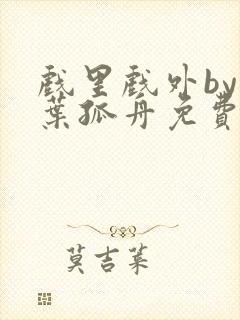 戲里戲外by
葉孤舟免費
莫吉葉